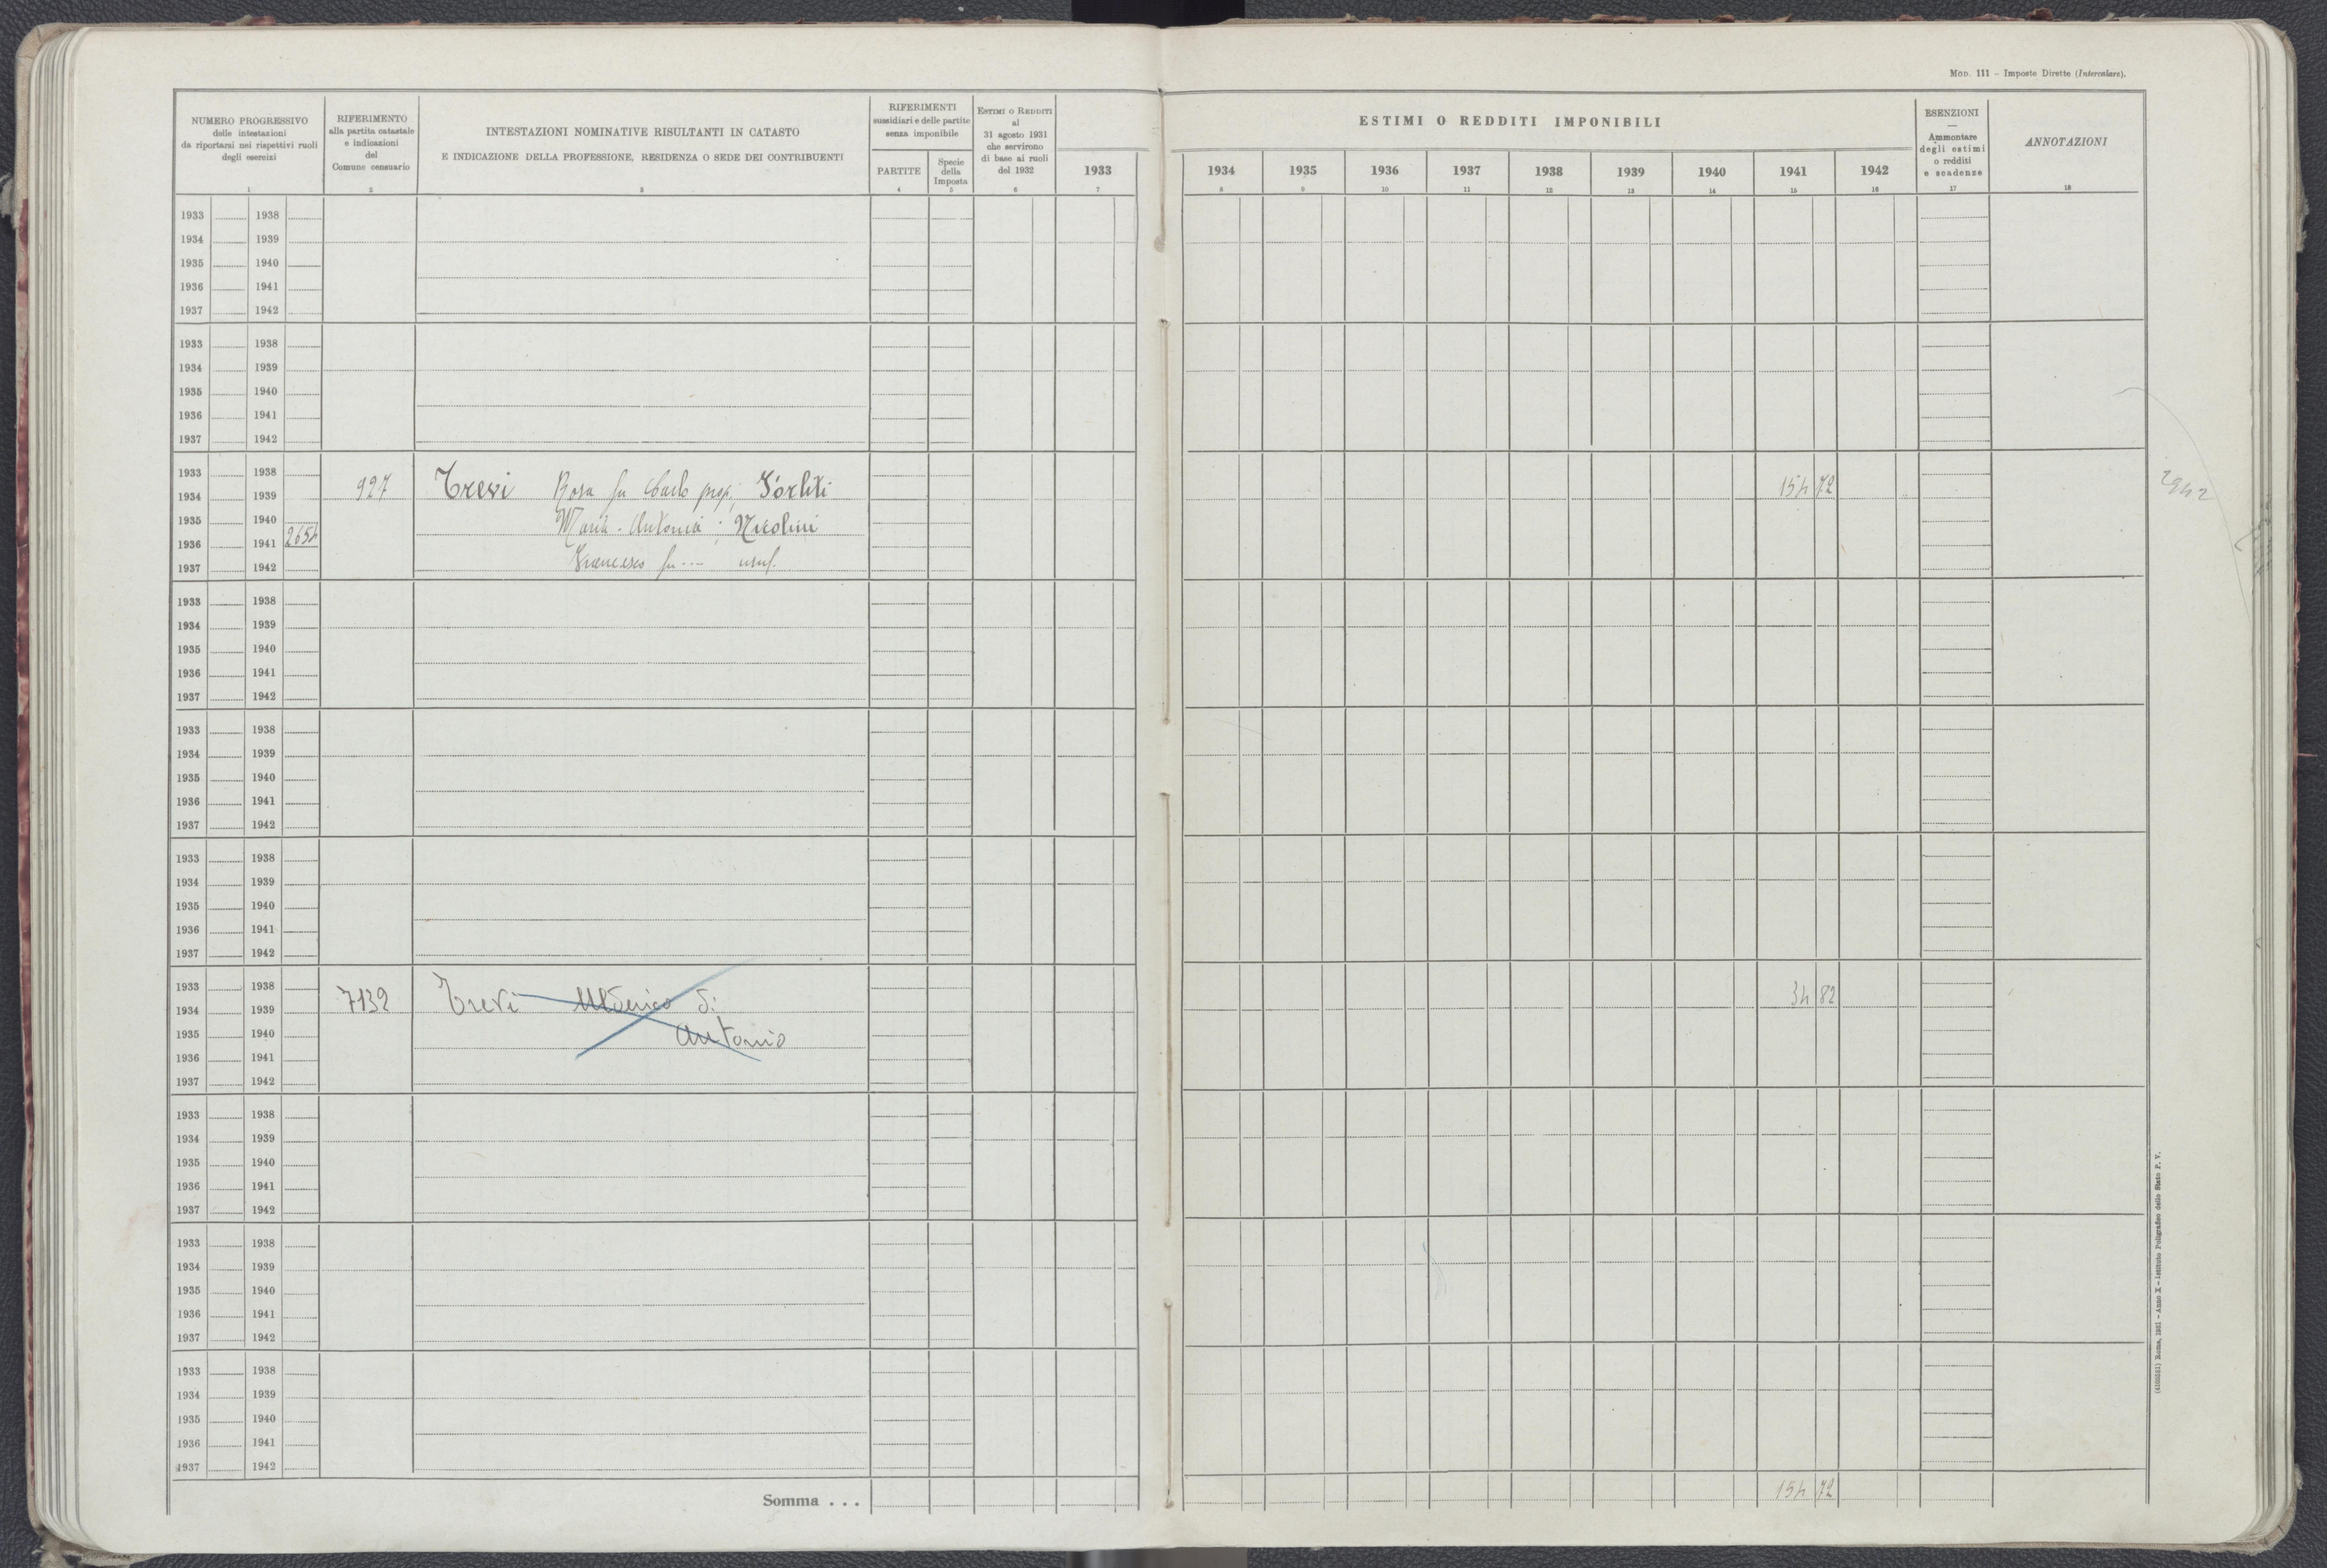 MOD. 111 – Imposte Dirette (Intercalare).
NUMERO PROGRESSIVO
delle intestazioni
da riportarsi nei rispettivi ruoli
degli esercizi
1
RIFERIMENTO
alla partita catastale
e indicazioni
del
Comune censuario
2
INTESTAZIONI NOMINATIVE RISULTANTI IN CATASTO
E INDICAZIONE DELLA PROFESSIONE, RESIDENZA O SEDE DEI CONTRIBUENTI
3
RIFERIMENTI
sussidiari e delle partite
senza imponibile
PARTITE
4
Specie
della
Imposta
5
ESTIMI O REDDITI
al
31 agosto 1931
che servirono
di base ai ruoli
del 1932
6
1933
7
ESTIMI O REDDITI IMPONIBILI
1934 1935 1936 1937 1938 1939 1940 1941 1942
8 9 10 11 12 13 14 15 16
ESENZIONI
—
Ammontare
degli estimi
o redditi
e scadenze
17
ANNOTAZIONI
18
1933 1938
1934 1939
1935 1940
1936 1941
1937 1942
1933 1938
1934 1939
1935 1940
1936 1941
1937 1942
1933 1938
1934 1939 927 Trevi Rosa fu Carlo prop; 154 72
1935 1940 Maria-Antonia; Nicolini
1936 1941 2654
1937 1942 Francesco fu --- usuf.
1933 1938
1934 1939
1935 1940
1936 1941
1937 1942
1933 1938
1934 1939
1935 1940
1936 1941
1937 1942
1933 1938
1934 1939
1935 1940
1936 1941
1937 1942
1933 1938
1934 1939 7132 Trevi Alderico di 34 82
1935 1940 Antonio
1936 1941
1937 1942
1933 1938
1934 1939
1935 1940
1936 1941
1937 1942
1933 1938
1934 1939
1935 1940
1936 1941
1937 1942
1933 1938
1934 1939
1935 1940
1936 1941
1937 1942
Somma . . . 154 72